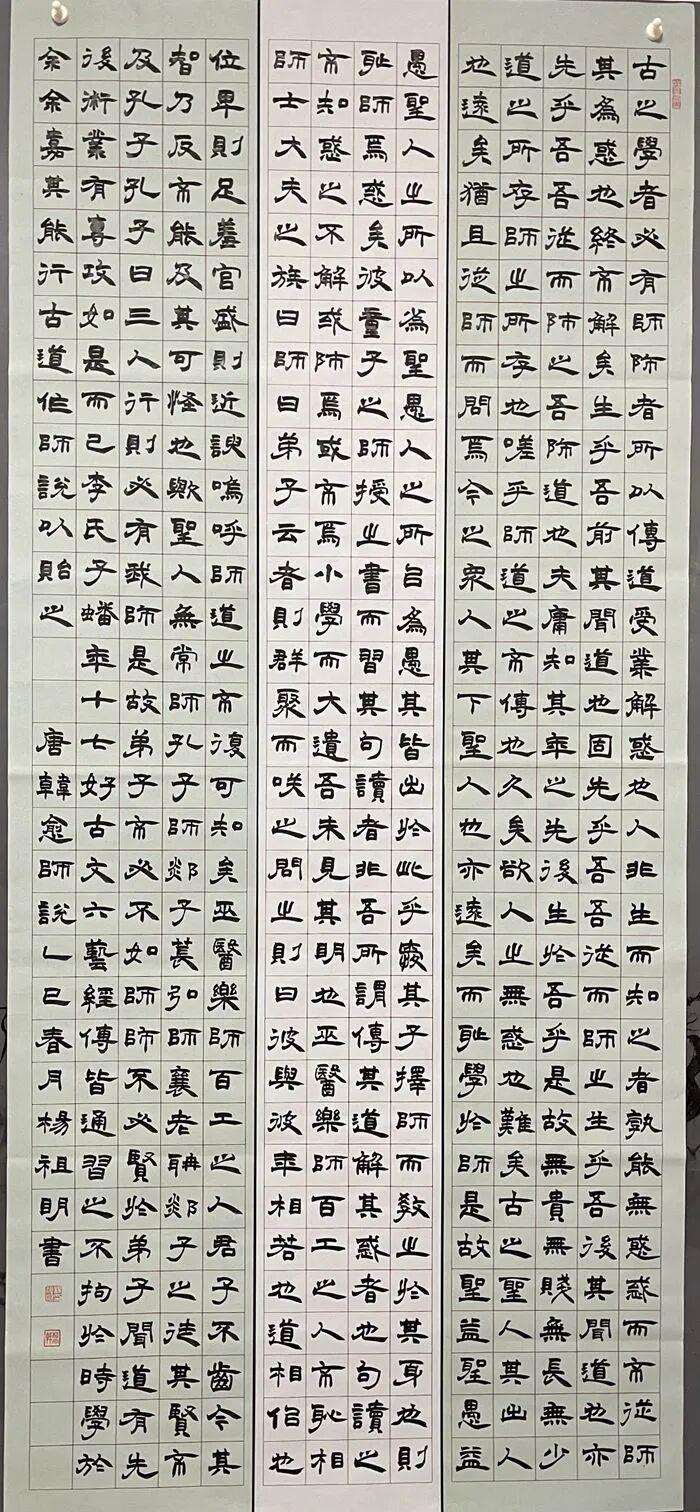 古之學者必有師師者所以傳道受業解惑也人非生而知之者孰能無惑惑而不從師
其為惑也終不解矣生乎吾前其聞道也固先乎吾吾從而師之生乎吾後其聞道也亦
先乎吾吾從而師之吾師道也夫庸知其年之先後生於吾乎是故無貴無賤無長無少
道之所存師之所存也嗟乎師道之不傳也久矣欲人之無惑也難矣古之聖人其出人
也遠矣猶且從師而問焉今之眾人其下聖人也亦遠矣而恥學於師是故聖益聖愚益
愚聖人之所以為聖愚人之所以為愚其皆出於此乎愛其子擇師而教之於其身也則
恥師焉惑矣彼童子之師授之書而習其句讀者非吾所謂傳其道解其惑者也句讀之
不知惑之不解或師焉或不焉小學而大遺吾未見其明也巫醫樂師百工之人不恥相
師士大夫之族曰師曰弟子云者則群聚而咲之問之則曰彼與彼年相若也道相似也
位卑則足羞官盛則近諛嗚呼師道之不復可知矣巫醫樂師百工之人君子不齒今其
智乃反不能及其可怪也歟聖人無常師孔子師郯子萇弘師襄老聃郯子之徒其賢不
及孔子孔子曰三人行則必有我師是故弟子不必不如師師不必賢於弟子聞道有先
後術業有專攻如是而已李氏子蟠年十七好古文六藝經傳皆通習之不拘於時學於
余余嘉其能行古道作師說以貽之 唐韓愈師說乙巳春月楊祖明書